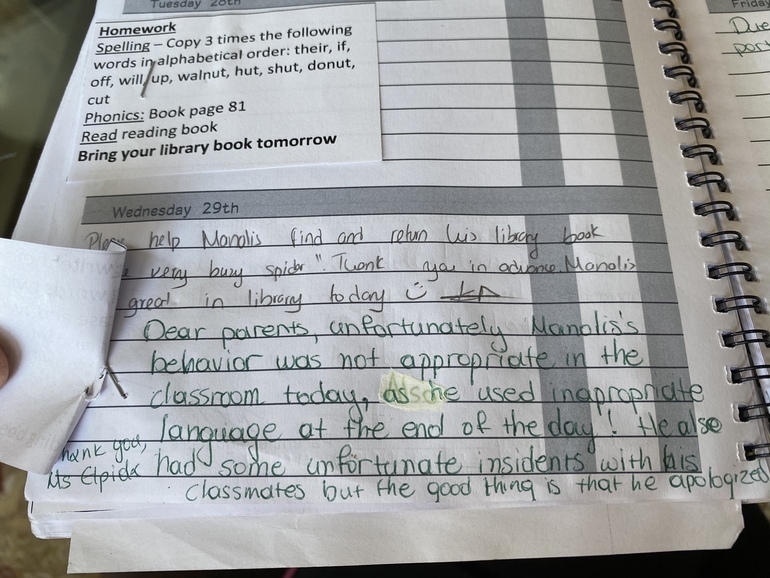 Tuesday 28th
Homework
Spelling – Copy 3 times the following
words in alphabetical order: their, if,
off, will, up, walnut, hut, shut, donut,
cut
Phonics: Book page 81
Read reading book
Bring your library book tomorrow
Friday
Due
Wednesday 29th
help Manolis find and return his library book
very busy spider". Thank you in advance. Manolis
great in library today
Dear parents, unfortunately Manolis's
behavior was not appropriate in the
classroom today, as he used inapropriate
language at the end of the day! He also
had some unfortunate insidents with his
classmates but the good thing is that he apologized
Thank you,
Ms Elpida